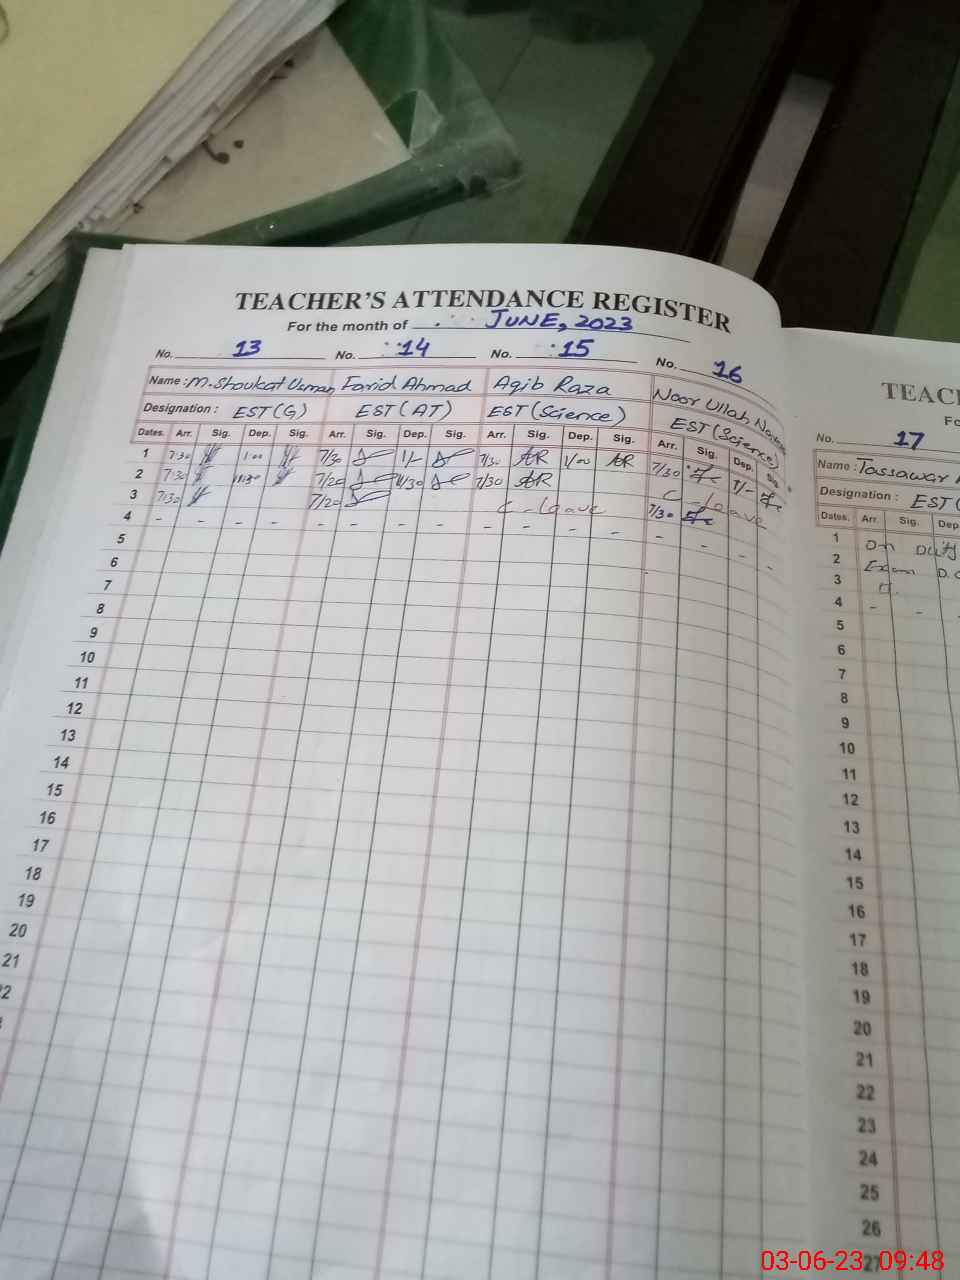 TEACHER'S ATTENDANCE REGISTER
For the month of JUNE, 2023
No. 13 No. 14 No. 15 No. 16
Name: M. Shoukat Usman Farid Ahmad Aqib Raza Noor Ullah
Designation: EST (G) EST (AT) EST (Science) EST (Science)
Dates. Arr. Sig. Dep. Sig. Arr. Sig. Dep. Sig. Arr. Sig. Dep. Sig. Arr. Sig. Dep. Sig.
1 7:30 1:00 7/30 1/- 7/30 AR 1/00 AR 7/30 1/-
2 7:30 11:30 7/20 11/30 7/30 AR C-leave
3 7:30 7/20 C-leave 7/30
4 - - - - - - - - - - - - - - - -
5
6
7
8
9
10
11
12
13
14
15
16
17
18
19
20
21
22
TEAC
Fo
No. 17
Name: Tassawar
Designation: EST (
Dates. Arr. Sig. Dep
1 On Duty
2 Exam D.
3
4 - -
5
6
7
8
9
10
11
12
13
14
15
16
17
18
19
20
21
22
23
24
25
26
27
03-06-23 09:48